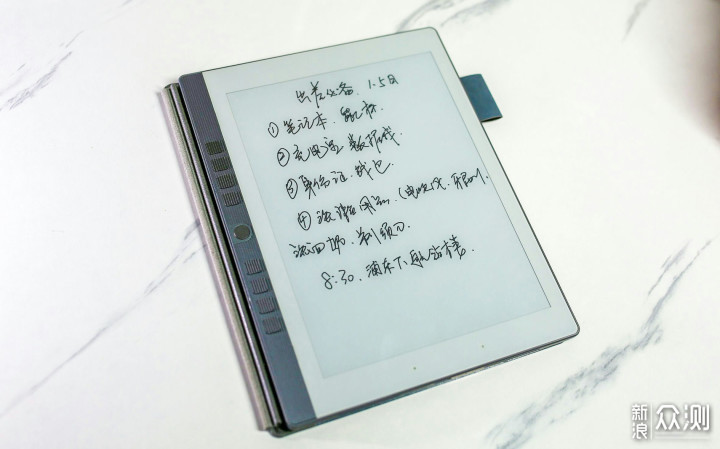 出差必备 1.5日
①笔记本、鼠标
②充电源、数据线、
③身份证、钱包、
④洗漱用品、(电吹风、
洗面奶、剃须刀、
8:30、浦东下航站楼、
新浪众测